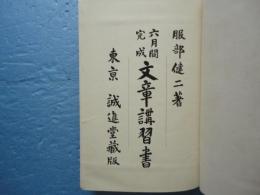 服部健二著
六月間
完成
文章講習書
東京 誠進堂蔵版